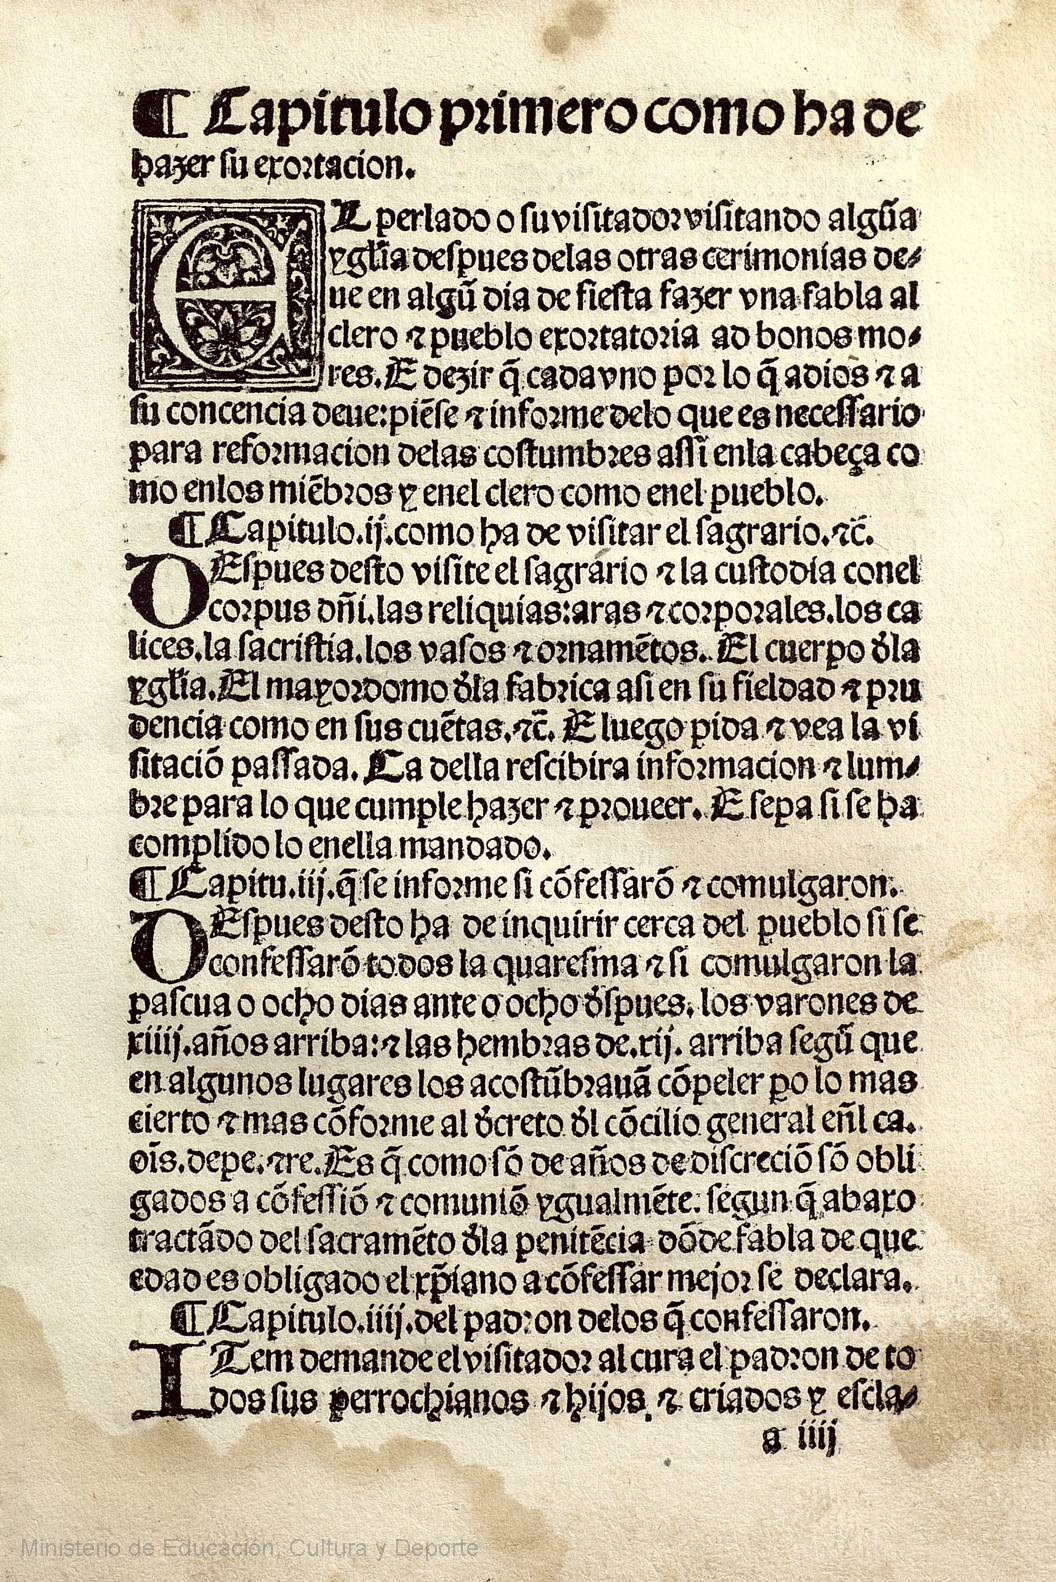 ¶ Capitulo primero como ha de
hazer su exortacion.
EL perlado o su visitador visitando algũa
ygłia despues delas otras cerimonias de⸗
ue en algũ dia de fiesta fazer vna fabla al
clero ⁊ pueblo exortatoria ad bonos mo⸗
res. E dezir q̃ cada vno por lo q̃ a dios ⁊ a
su concencia deue: piẽse ⁊ informe delo que es necessario
para reformacion delas costumbres assi enla cabeça co
mo enlos miẽbros y enel clero como enel pueblo.
¶ Capitulo .ij. como ha de visitar el sagrario. ⁊c̃.
DEspues desto visite el sagrario ⁊ la custodia conel
corpus dñi. las reliquias: aras ⁊ corporales. los ca
lices. la sacristia. los vasos ⁊ ornamẽtos. El cuerpo đla
ygłia. El mayordomo đla fabrica asi en su fieldad ⁊ pru
dencia como en sus cuẽtas. ⁊c̃. E luego pida ⁊ vea la vi
sitaciõ passada. Ca della rescibira informacion ⁊ lum⸗
bre para lo que cumple hazer ⁊ proueer. E sepa si se ha
complido lo enella mandado.
¶ Capitu .iij. q̃ se informe si cõfessarõ ⁊ comulgaron.
DEspues desto ha de inquirir cerca del pueblo si se
confessarõ todos la quaresma ⁊ si comulgaron la
pascua o ocho dias ante o ocho đspues. los varones de
xiiij. años arriba: ⁊ las hembras de .xij. arriba segũ que
en algunos lugares los acostũbrauã cõpeler po lo mas
cierto ⁊ mas cõforme al đcreto đl cõcilio general eñl ca.
oĩs. de pe. ⁊ re. Es q̃ como sõ de años de discreciõ sõ obli
gados a cõfessiõ ⁊ comuniõ ygualmẽte. segun q̃ abaxo
tractãdo del sacramẽto đla penitẽcia dõde fabla de que
edad es obligado el xp̃iano a cõfessar mejor se declara.
¶ Capitulo .iiij. del padron delos q̃ confessaron.
ITem demande el visitador al cura el padron de to
dos sus perrochianos ⁊ hijos ⁊ criados y escla⸗
a iiij
Ministerio de Educación, Cultura y Deporte